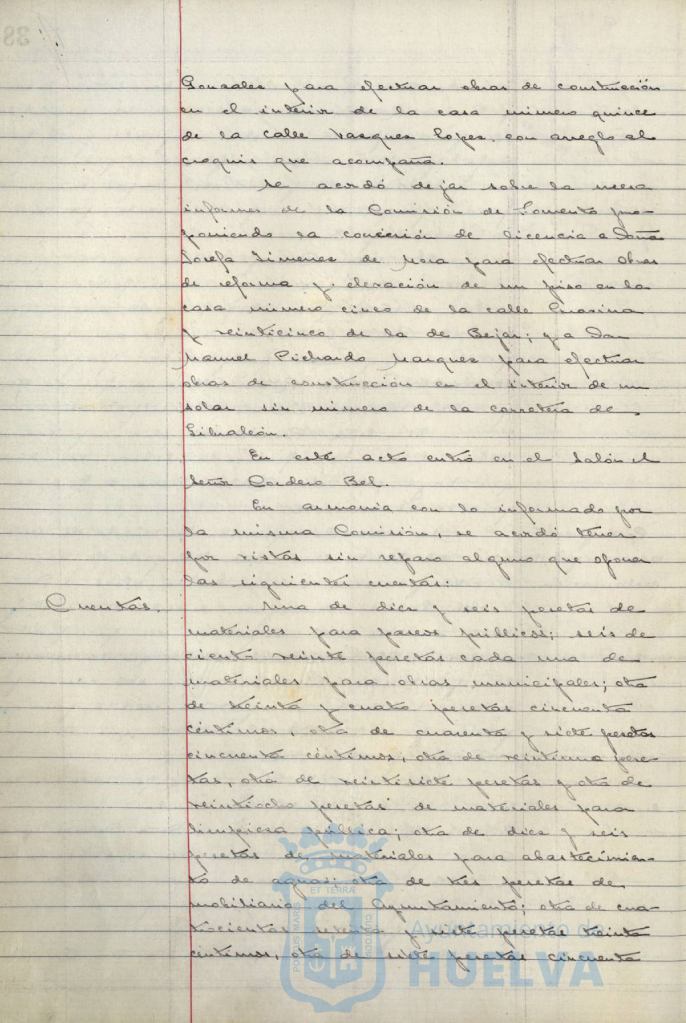 38
Gonzalez para efectuar obras de construcción
en el interior de la casa número quince
de la calle Vazquez Lopez, con arreglo al
croquis que acompaña.
Se acordó dejar sobre la mesa
informes de la Comisión de Fomento pro-
poniendo la concesión de licencia a Doña
Josefa Jimenez de Mora para efectuar obras
de reforma y elevación de un piso en la
casa número cinco de la calle
y veinticinco de la de Bejar; y a Don
Manuel Pichardo Marquez para efectuar
obras de construcción en el interior de un
solar sin número de la carretera de
Gibraleón.
En este acto entró en el Salón el
Señor Cordero Bel.
En armonia con lo informado por
la misma Comisión, se acordó tener
por vistas sin reparo alguno que oponer
las siguientes cuentas:
Cuentas.
Una de diez y seis pesetas de
materiales para paseos públicos; seis de
ciento veinte pesetas cada una de
materiales para obras municipales; otra
de treinta y cuatro pesetas cincuenta
céntimos, otra de cuarenta y siete pesetas
cincuenta céntimos, otra de veintiuna pese-
tas, otra de veintisiete pesetas y otra de
veintiocho pesetas de materiales para
limpieza pública; otra de diez y seis
pesetas de materiales para abastecimien-
to de aguas; otra de tres pesetas de
mobiliario del Ayuntamiento; otra de cua-
trocientas setenta y siete pesetas treinta
céntimos, otra de siete pesetas cincuenta
PORTUS MARIS
ET TERRÆ
CUSTODIA
Ayuntamiento de
HUELVA